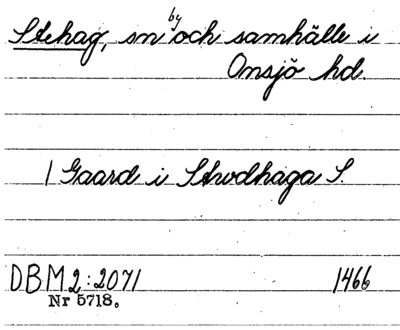 Stehag, sn by och samhälle i
Onsjö hd.
1 Gaard i Stwdhaga S.
DBM 2:2071 1466
Nr 5718.